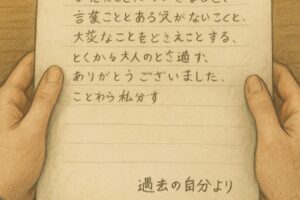 言葉こととある気がないこくと、
大変なことをどさえことする、
とくから大人のとき過す、
ありがとうございました、
ことわら私分す
過去の自分より